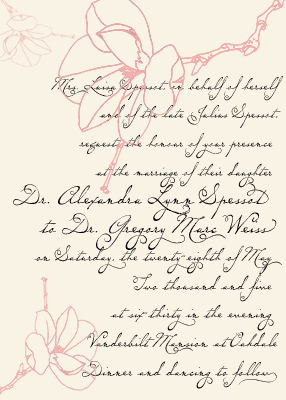 Mrs. Luisa Spessot, on behalf of herself
and of the late Julius Spessot,
requests the honour of your presence
at the marriage of their daughter
Dr. Alexandra Lynn Spessot
to Dr. Gregory Marc Weiss
on Saturday, the twenty-eighth of May
Two thousand and five
at six thirty in the evening
Vanderbilt Mansion at Oakdale
Dinner and dancing to follow